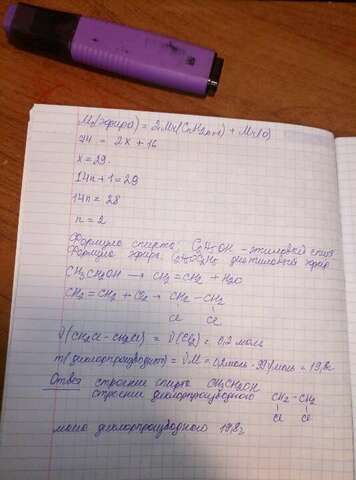 Mr(эфира) = 2Mr(CnH2n+1) + Mr(O)
74 = 2x + 16
x = 29.
14n + 1 = 29
14n = 28
n = 2
Формула спирта: C2H5OH - этиловый спирт
Формула эфира C2H5OC2H5 диэтиловый эфир
CH3CH2OH → CH2=CH2 + H2O
CH2=CH2 + Cl2 → CH2-CH2
Cl Cl
ν(CH2Cl-CH2Cl) = ν(Cl2) = 0,2 моль
m(дихлорпроизводн) = νM = 0,2моль·99г/моль = 19,8г
Ответ строение спирта CH3CH2OH
строение дихлорпроизводного CH2-CH2
Cl Cl
масса дихлорпроизводного 19,8г